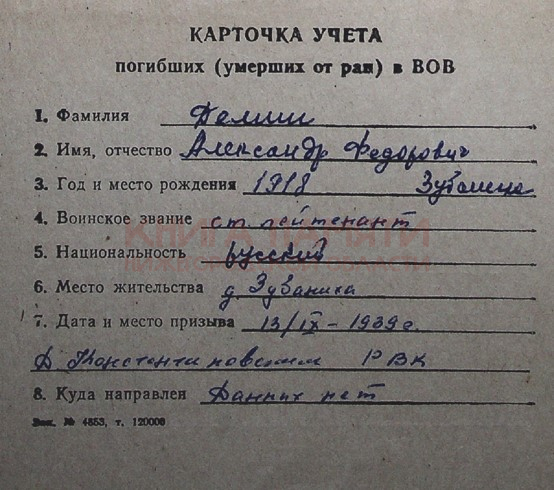 КАРТОЧКА УЧЕТА
погибших (умерших от ран) в ВОВ
1. Фамилия Демин
2. Имя, отчество Александр Федорович
3. Год и место рождения 1918
4. Воинское звание ст лейтенант
5. Национальность русский
6. Место жительства д
7. Дата и место призыва 13/IX - 1939 г.
РВК
8. Куда направлен Данных нет
Зак. № 4853, т. 120000
КНИГА ПАМЯТИ
ОБЛАСТИ